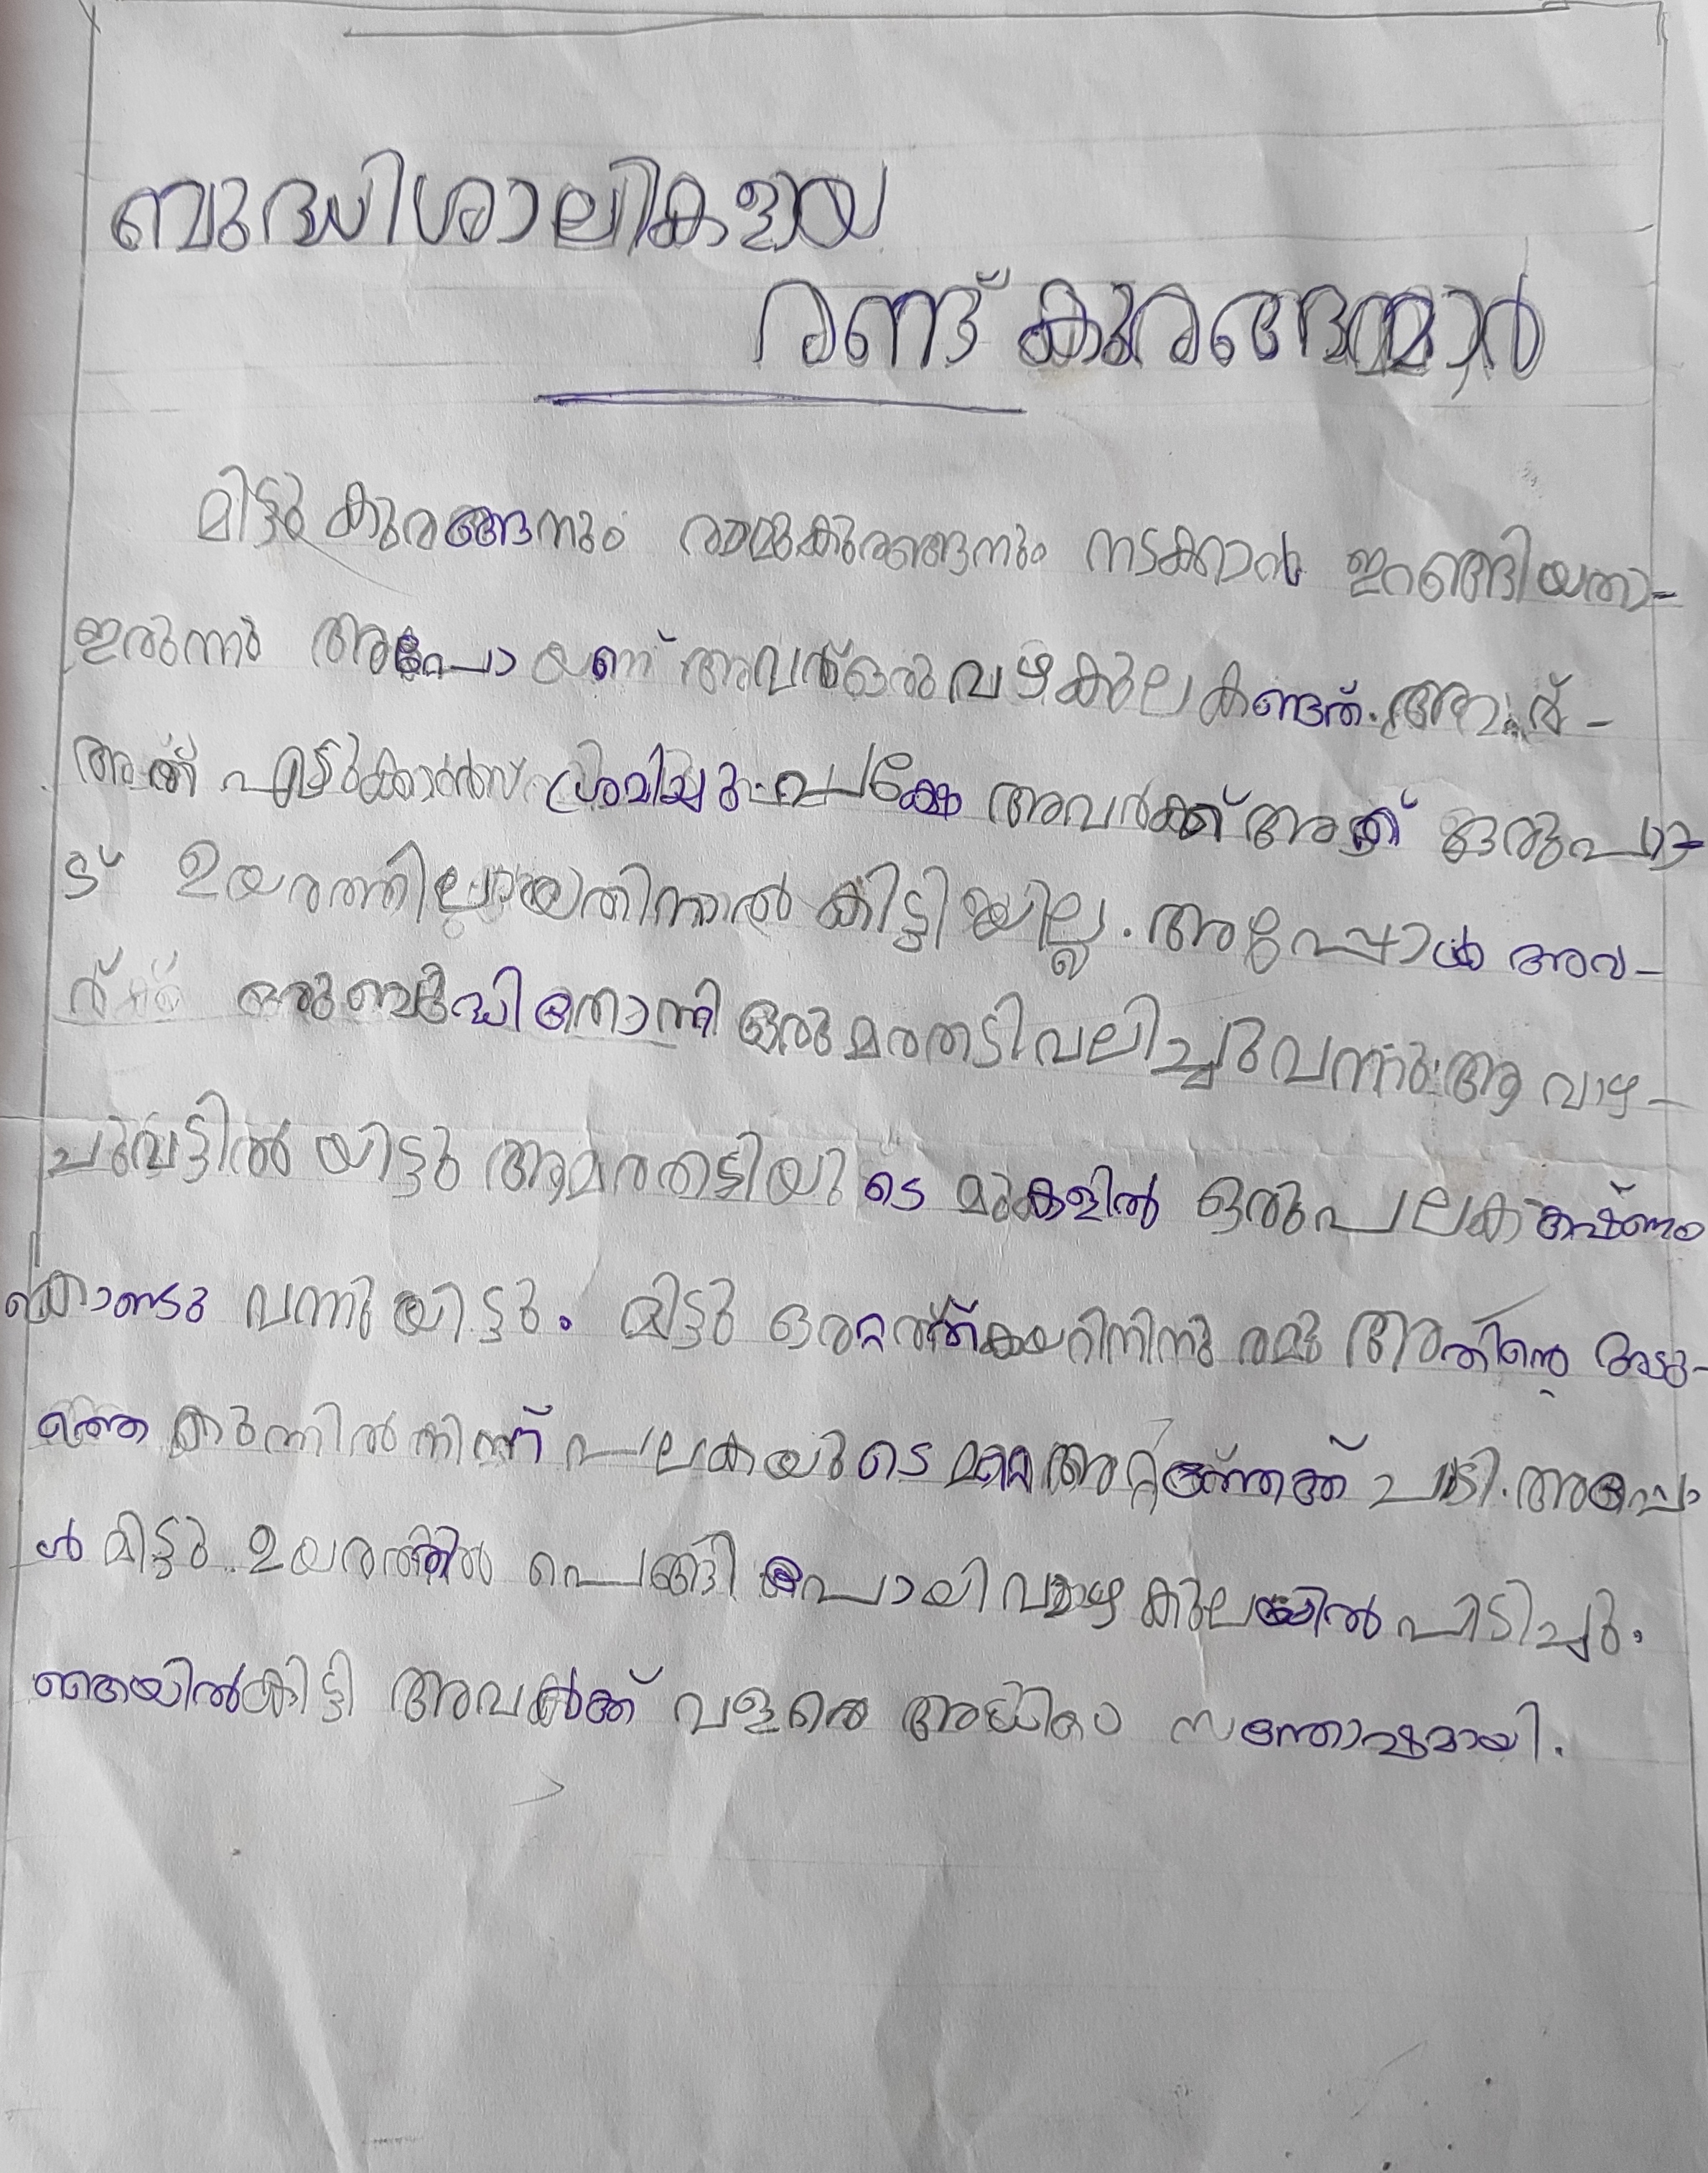 ബുദ്ധിശാലികളായ
രണ്ട് കുരങ്ങന്മാർ
മിട്ടു കുരങ്ങനും രാമുകുരങ്ങനും നടക്കാൻ ഇറങ്ങിയതാ-
ഇരുന്നു അപ്പോ യണ് അവര് ഒരു വഴകുല കണ്ടത്. അവര് -
അത് എടുക്കാൻ ശ്രമിച്ചു. പക്ഷേ അവർക്ക് അത് ഒരുപാ-
ട് ഉയരത്തിലായതിനാൽ കിട്ടിയില്ല. അപ്പോൾ അവ-
ര്ക്ക് ഒരു ബുദ്ധി തോന്നി ഒരു മരതടി വലിച്ചു വന്നു ആ വാഴ-
ചുവട്ടിൽ യിട്ടു ആമരതട്ടിയുടെ മുകളിൽ ഒരു പലക കഷ്ണം
കൊണ്ടു വന്നു യിട്ടു. മിട്ടു ഒരറ്റത്ത് കയറിനിന്നു രമു അതിന്റെ അടു-
ത്തെ കുന്നിൽ നിന്ന് പലകയുടെ മറ്റെ അറ്റത്തേക്ക് ചാടി. അപ്പോ
ൾ മിട്ടു ഉയരത്തിൽ പൊങ്ങി പോയി വാഴ കുലയിൽ പിടിച്ചു.
കൈയിൽകിട്ടി അവർക്ക് വളരെ അധികം സന്തോഷമായി.